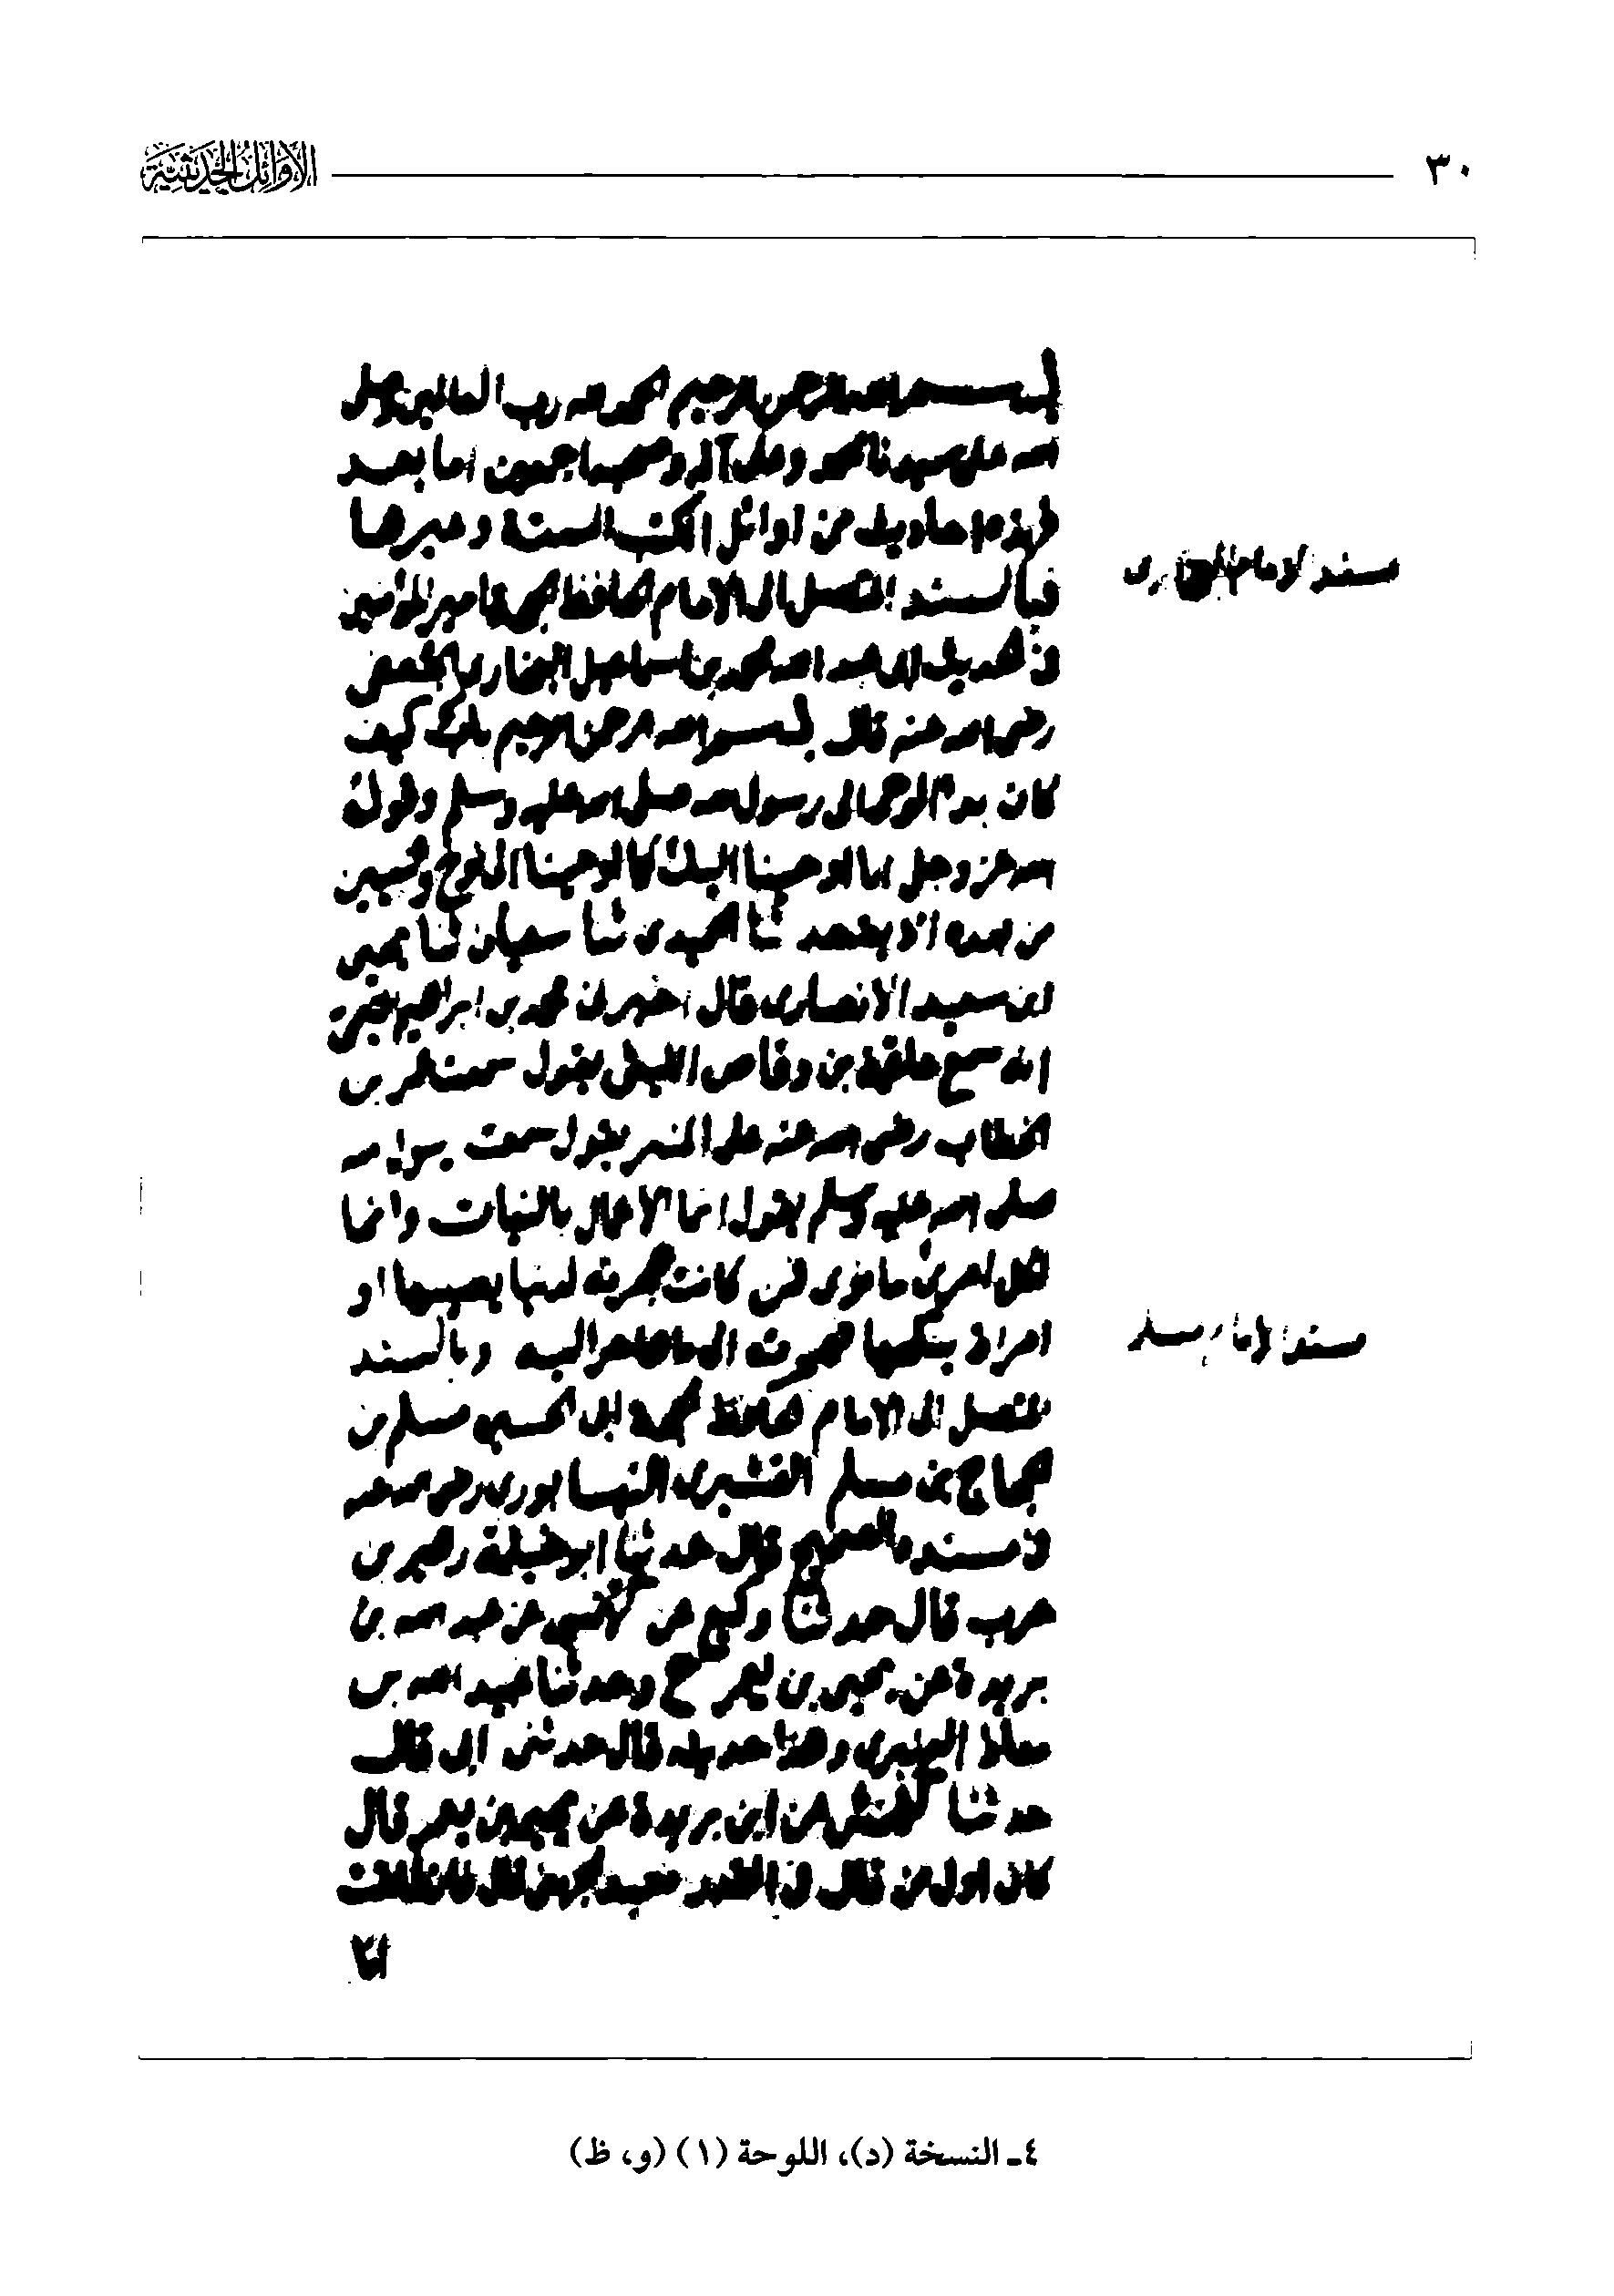 ٣٠
الأوائل الحديثية
بسم الله الرحمن الرحيم الحمد لله رب العالمين وصلى
الله على سيدنا محمد وعلى آله وصحبه اجمعين اما بعد
فهذه احاديث من اوائل الكتب الستة وغيرها
مسند الامام البخارى
فبالسند المتصل الى الامام الحافظ الحجة امير المؤمنين
فى الحديث ابى عبد الله محمد بن اسماعيل البخارى الجعفى
رضى الله عنه قال بسم الله الرحمن الرحيم باب كيف
كان بدء الوحى الى رسول الله صلى الله عليه وسلم وقول
الله عز وجل انا اوحينا اليك كما اوحينا الى نوح والنبيين
من بعده الآية حدثنا الحميدى ثنا سفيان ثنا يحيى
ابن سعيد الانصارى قال اخبرنى محمد بن ابراهيم التيمى
انه سمع علقمة بن وقاص الليثى يقول سمعت عمر بن
الخطاب رضى الله عنه على المنبر يقول سمعت رسول الله
صلى الله عليه وسلم يقول انما الاعمال بالنيات وانما
لكل امرئ ما نوى فمن كانت هجرته لدنيا يصيبها او
امراة ينكحها فهجرته الى ما هاجر اليه وبالسند
مسند الامام مسلم
المتصل الى الامام الحافظ الحجة ابى الحسين مسلم بن
الحجاج بن مسلم القشيرى النيسابورى رضى الله عنه
فى مسنده الصحيح قال حدثنا ابو خيثمة زهير بن
حرب قال حدثنا وكيع عن كهمس عن عبد الله بن
بريدة عن يحيى بن يعمر ح وحدثنا عبيد الله بن
معاذ العنبرى وهذا حديثه قال حدثنى ابى قال
حدثنا كهمس عن ابن بريدة عن يحيى بن يعمر قال
كان اول من قال فى القدر معبد الجهنى قال فانطلقت
انا
٤ـ النسخة (د)، اللوحة (١) (و، ظ)